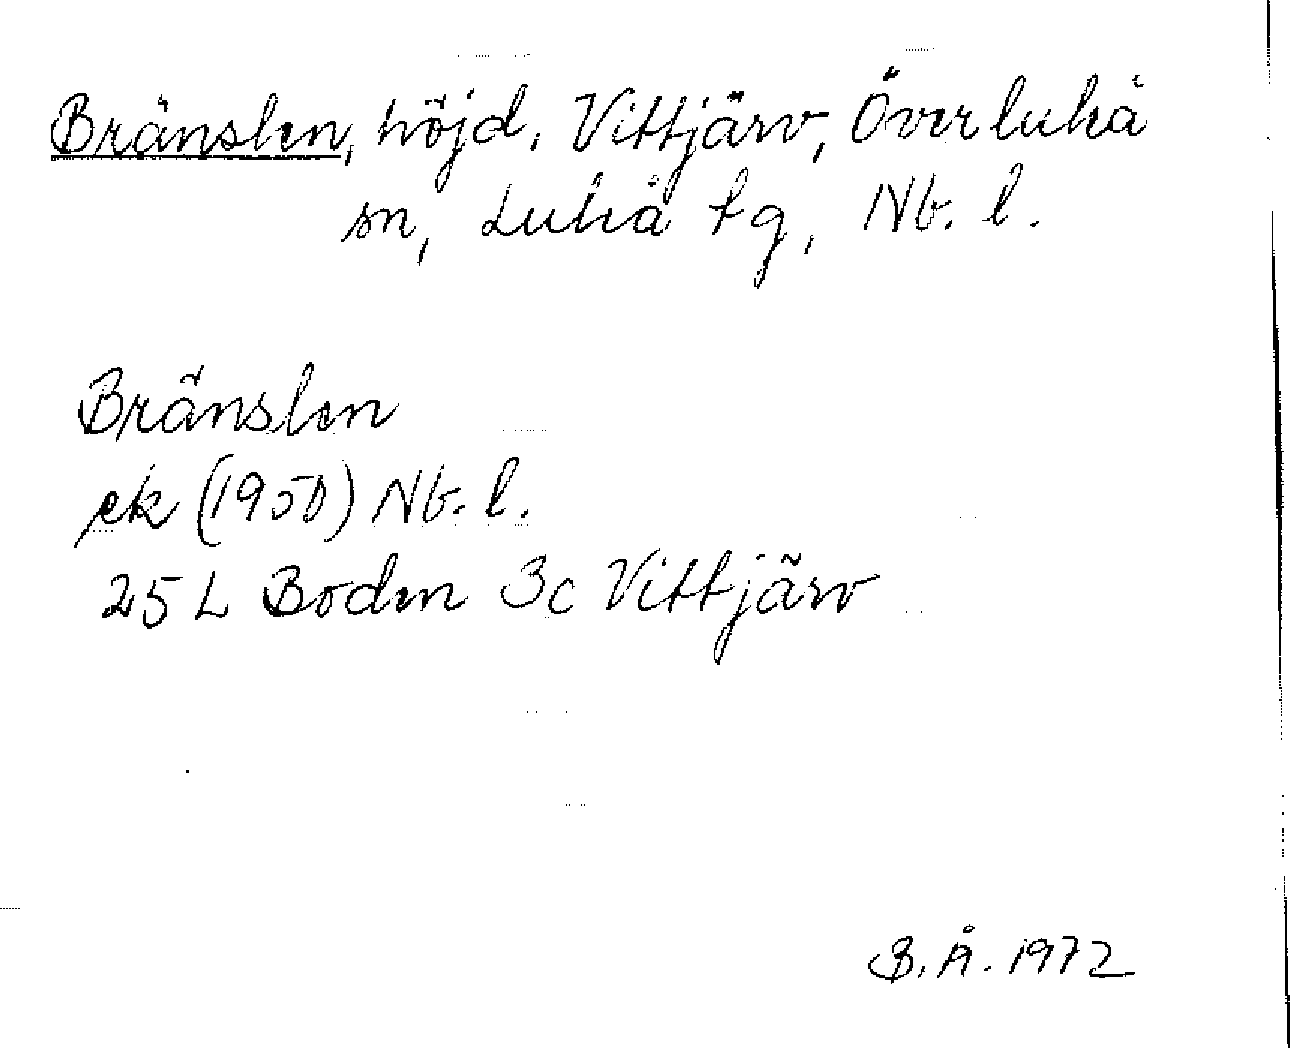 Bränslen, höjd, Vittjärv, Överluleå
sn, Luleå tg, Nb. l.
Bränslen
ek (1950) Nb. l.
25 L Boden 3c Vittjärv
B. Å. 1972